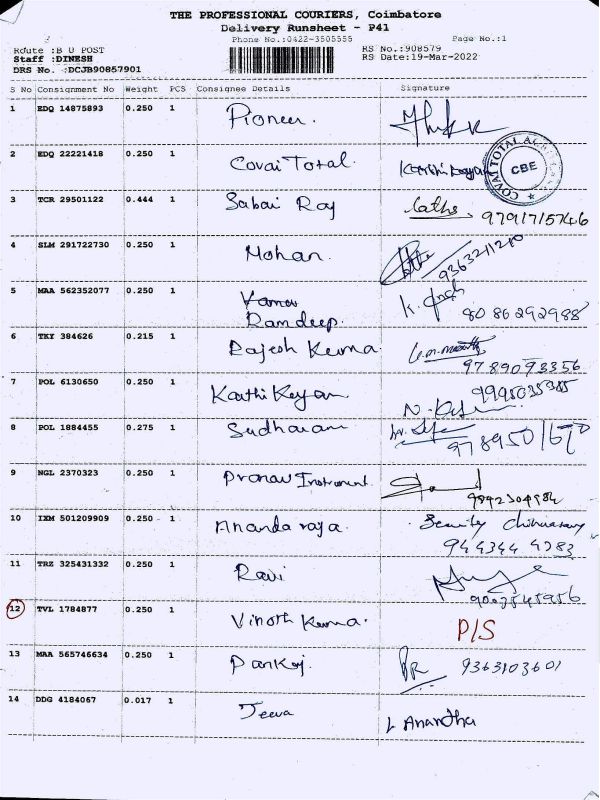 THE PROFESSIONAL COURIERS, Coimbatore
Delivery Runsheet - P41
Phone No.:0422-3505555 Page No.:1
Route :B U POST RS No.:908579
Staff :DINESH RS Date:19-Mar-2022
DRS No. :DCJB90857901
S No Consignment No Weight PCS Consignee Details Signature
1 EDQ 14875893 0.250 1 Pioneer.
2 EDQ 22221418 0.250 1 Covai Total. Karthi keyan
COVAI TOTAL CBE
3 TCR 29501122 0.444 1 Sabai Raj Latha 9791715746
4 SLM 291722730 0.250 1 Mohan. 9363211210
5 MAA 562352077 0.250 1 Ramdeep. 8086292988
6 TKY 384626 0.215 1 Rajesh Kuma 9789093356
7 POL 6130650 0.250 1 Karthi Keyan 9995035385
8 POL 1884455 0.275 1 Sudharam
9 NGL 2370323 0.250 1 Pranav Instrument. 9842304984
10 IXM 501209909 0.250 1 Ananda raja. Security
944344 4283
11 TRZ 325431332 0.250 1 Ravi 9003545956
12 TVL 1784877 0.250 1 Vinoth Kuma. P/S
13 MAA 565746634 0.250 1 Pankaj. PR 9363103601
14 DDG 4184067 0.017 1 Jeeva L Anantha